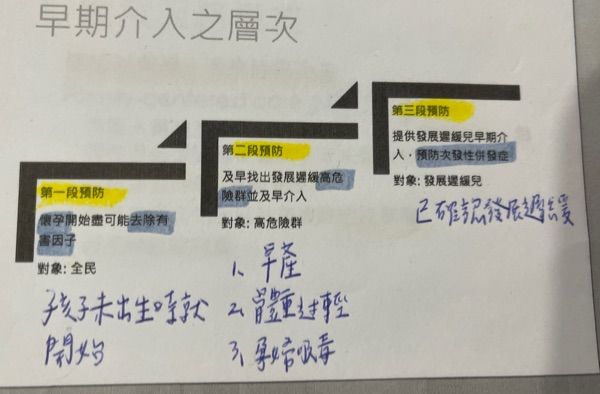 早期介入之層次
第一段預防
懷孕開始盡可能去除有
害因子
對象: 全民
孩子未出生時就
開始
第二段預防
及早找出發展遲緩高危
險群並及早介入
對象: 高危險群
1、早產
2、體重过輕
3、孕婦吸毒
第三段預防
提供發展遲緩兒早期介
入，預防次發性併發症
對象: 發展遲緩兒
已確認發展遲緩